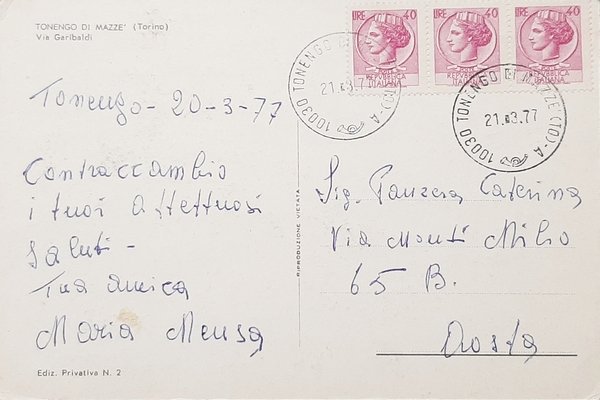 TONENGO DI MAZZE' (Torino)
Via Garibaldi
LIRE 40
REPVBBLICA
ITALIANA
LIRE 40
REPVBBLICA
ITALIANA
LIRE 40
REPVBBLICA
ITALIANA
10030 TONENGO DI MAZZE (TO) - A
21.03.77
10030 TONENGO DI MAZZE (TO) - A
21.03.77
Tonengo - 20-3-77
Contraccambio
i tuoi affettuosi
saluti -
Tua amica
Maria Mensa
Ediz. Privativa N. 2
RIPRODUZIONE VIETATA
Sig. Panzera Caterina
Via Monti Milio
65 B.
Aosta